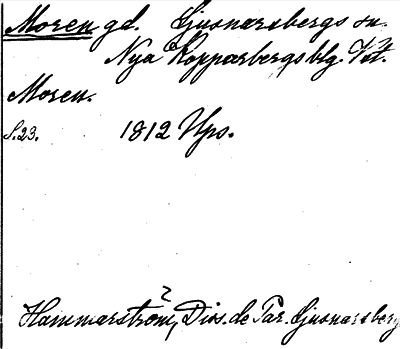 Moren gd. Ljusnarsbergs sn
Nya Kopparbergs blg. Vstl.
Moren.
S. 23. 1812 Ups.
Hammarström, Diss. de Par. Ljusnarsberg